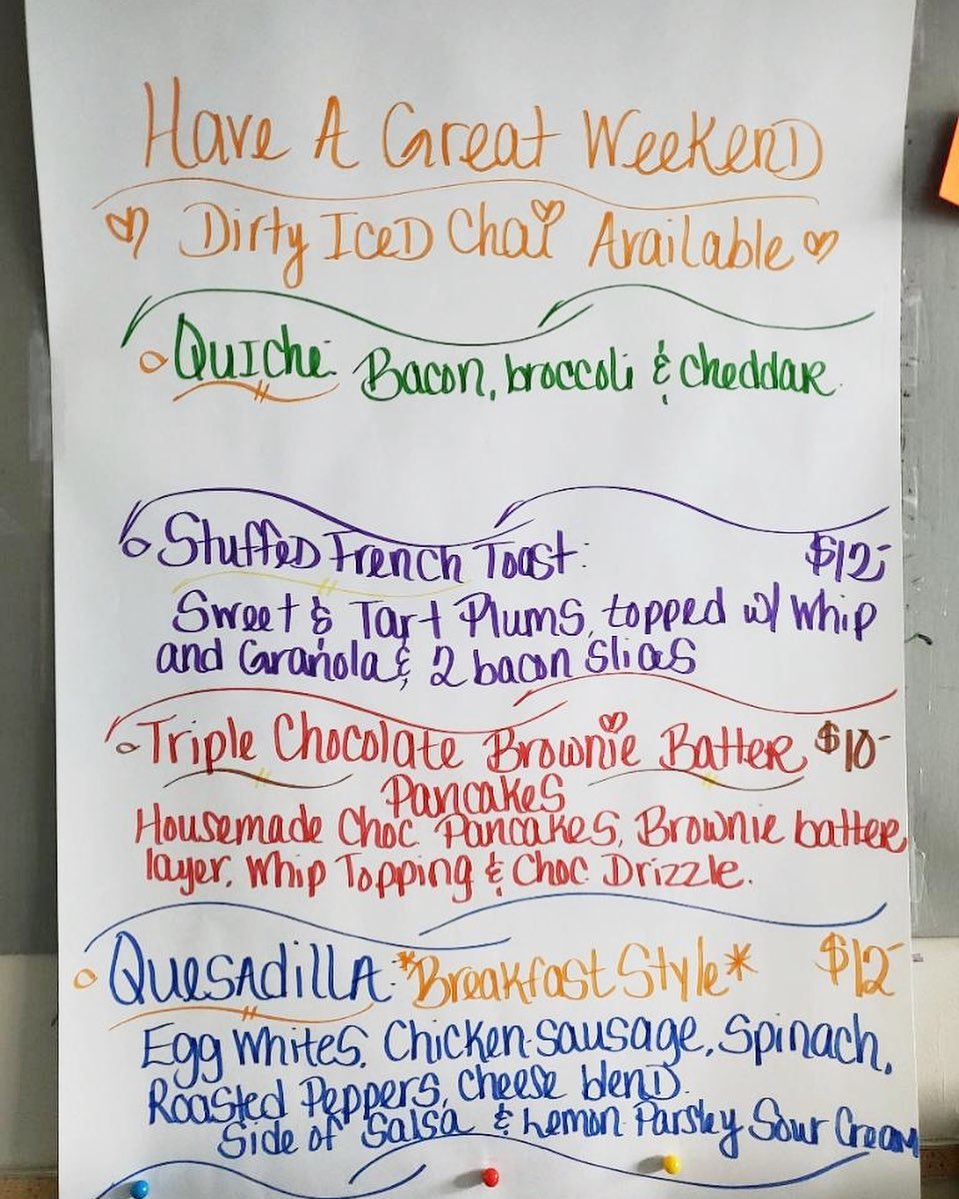 Have A Great Weekend
Dirty Iced Chai Available
Quiche: Bacon, broccoli & cheddar.
Stuffed French Toast: $12-
Sweet & Tart Plums, topped w/ Whip
and Granola & 2 bacon slices
Triple Chocolate Brownie Batter $10-
Pancakes
Housemade Choc Pancakes, Brownie batter
layer, Whip Topping & Choc Drizzle.
Quesadilla: *Breakfast Style* $12-
Egg Whites, Chicken sausage, Spinach,
Roasted Peppers, Cheese blend.
Side of Salsa & Lemon Parsley Sour Cream